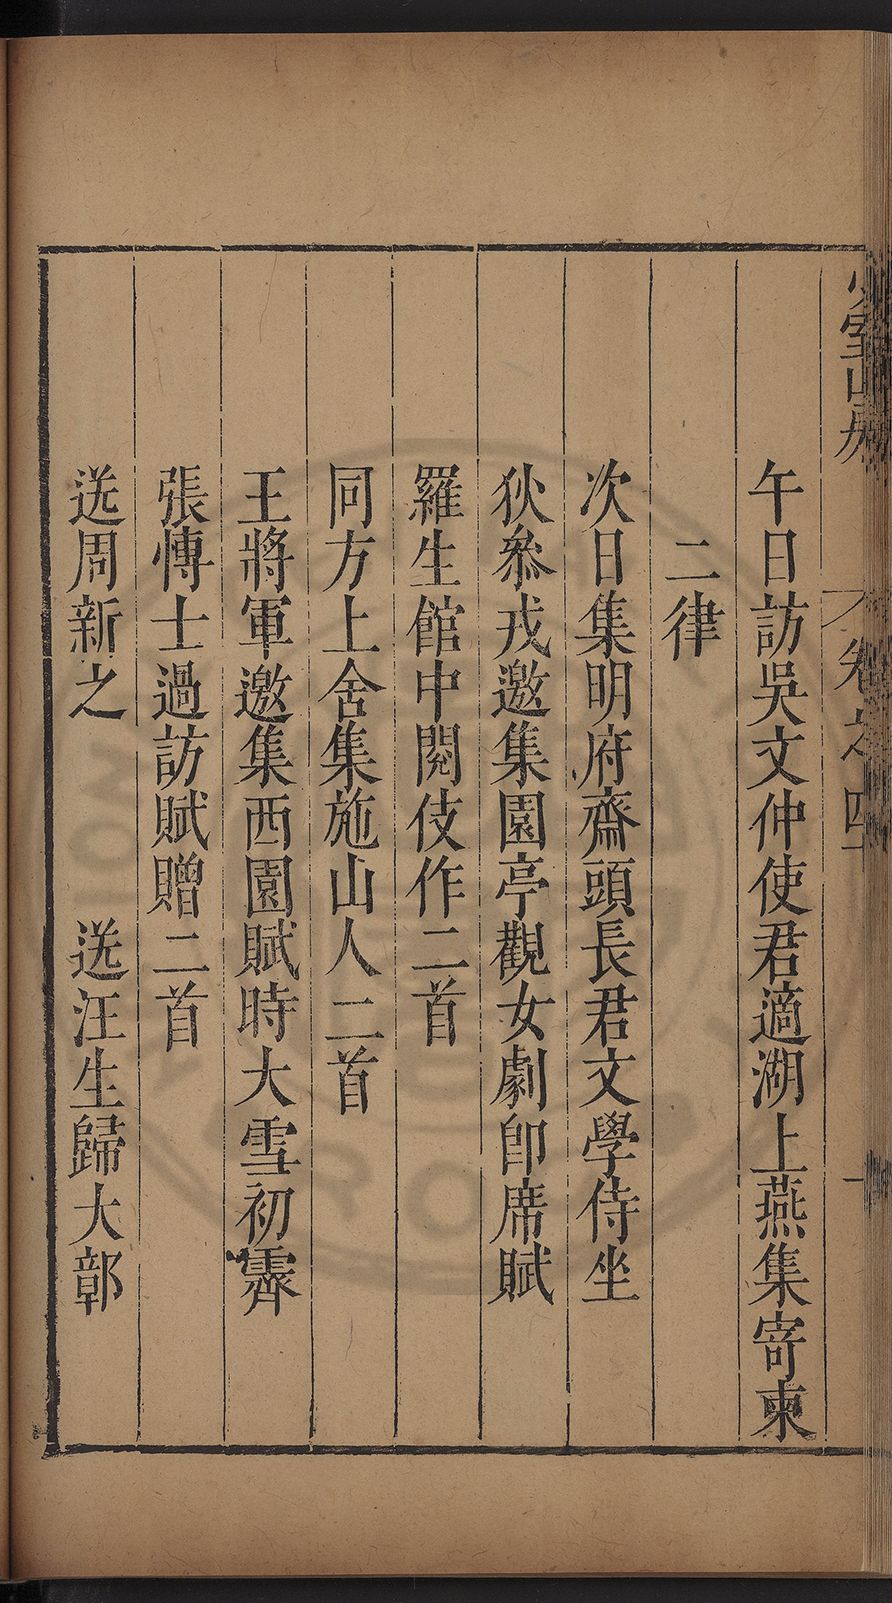 午日訪吳文仲使君適湖上燕集寄柬
二律
次日集明府齋頭長君文學侍坐
狄叅戎邀集園亭觀女劇即席賦
羅生館中閱伎作二首
同方上舍集施山人二首
王將軍邀集西園賦時大雪初霽
張愽士過訪賦贈二首
送周新之 送汪生歸大鄣